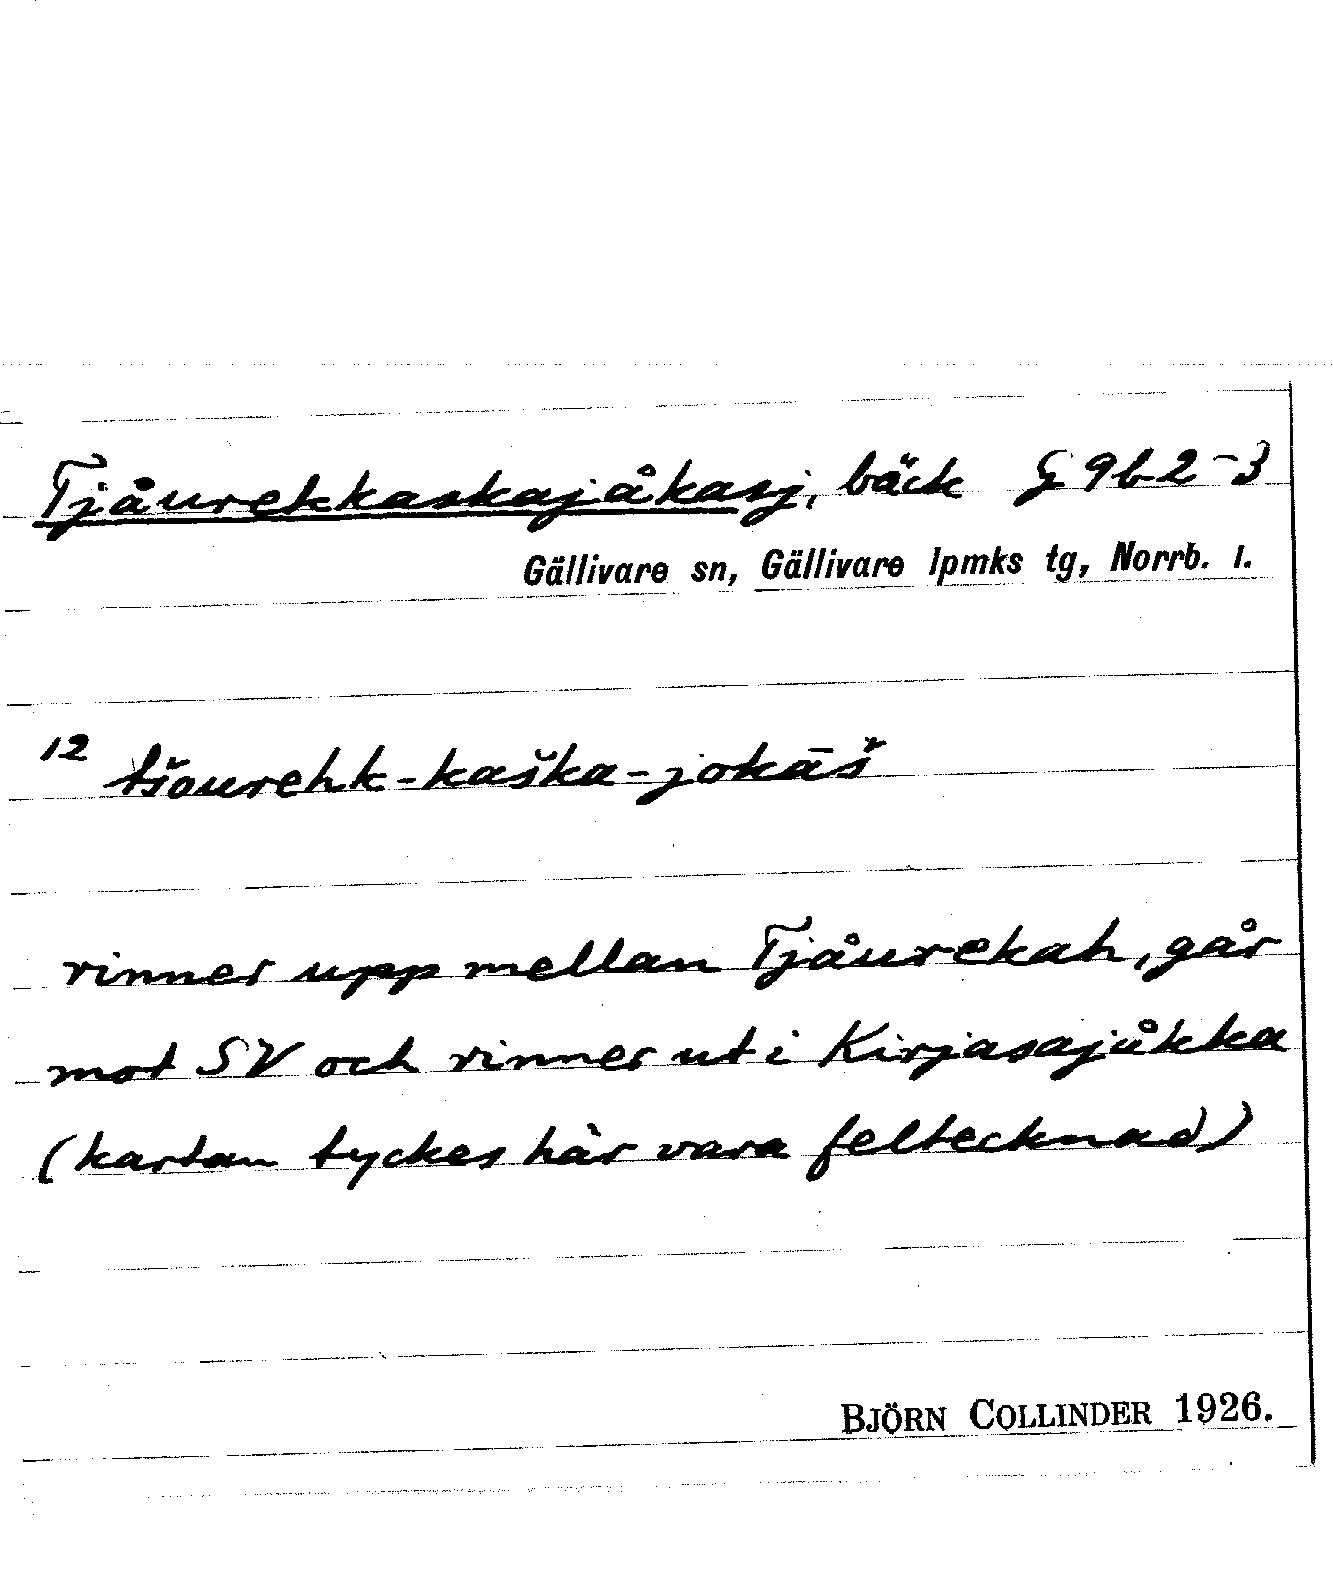 Tjåurekkaskajåkasj, bäck G 9b2-3
Gällivare sn, Gällivare lpmks tg, Norrb. l.
12 tšourehk-kaška-jokāš
rinner upp mellan Tjåurekah, går
mot SV och rinner ut i Kirjasajåkka
(kartan tyckes här vara feltecknad)
BJÖRN COLLINDER 1926.